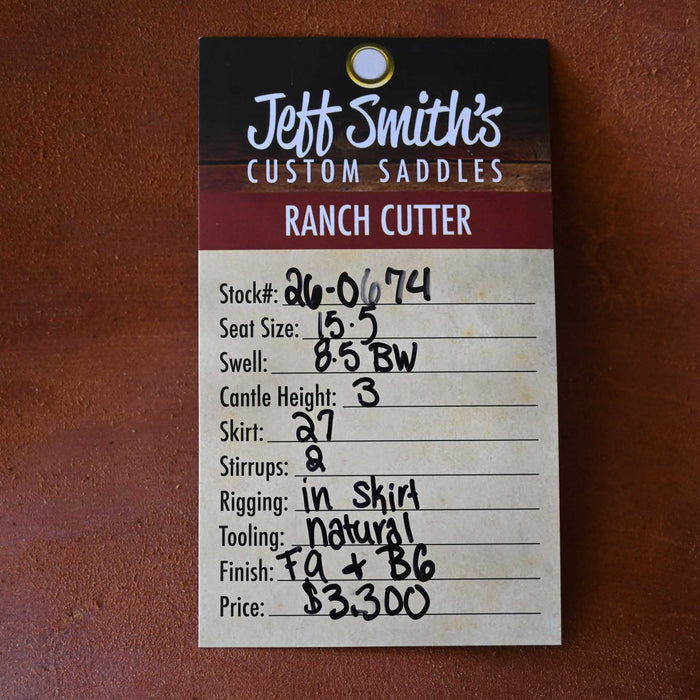 Jeff Smith's
CUSTOM SADDLES
RANCH CUTTER
Stock#: 26-0674
Seat Size: 15.5
Swell: 8.5 BW
Cantle Height: 3
Skirt: 27
Stirrups: 2
Rigging: in skirt
Tooling: natural
Finish: F9 + B6
Price: $3.300